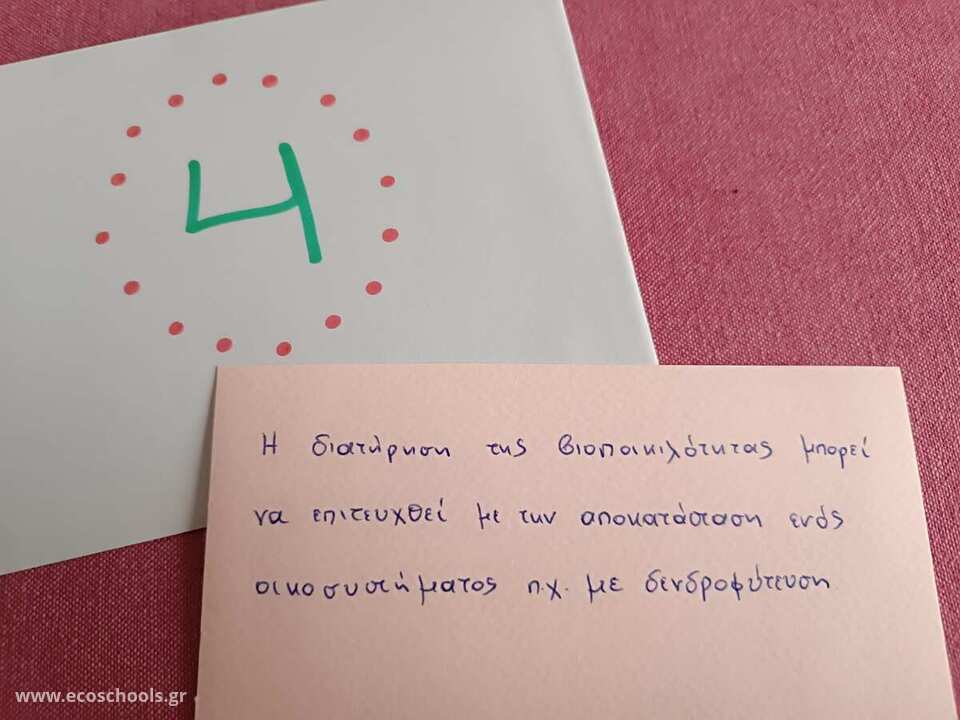 4
Η διατήρηση της βιοποικιλότητας μπορεί
να επιτευχθεί με την αποκατάσταση ενός
οικοσυστήματος π.χ. με δενδροφύτευση
www.ecoschools.gr